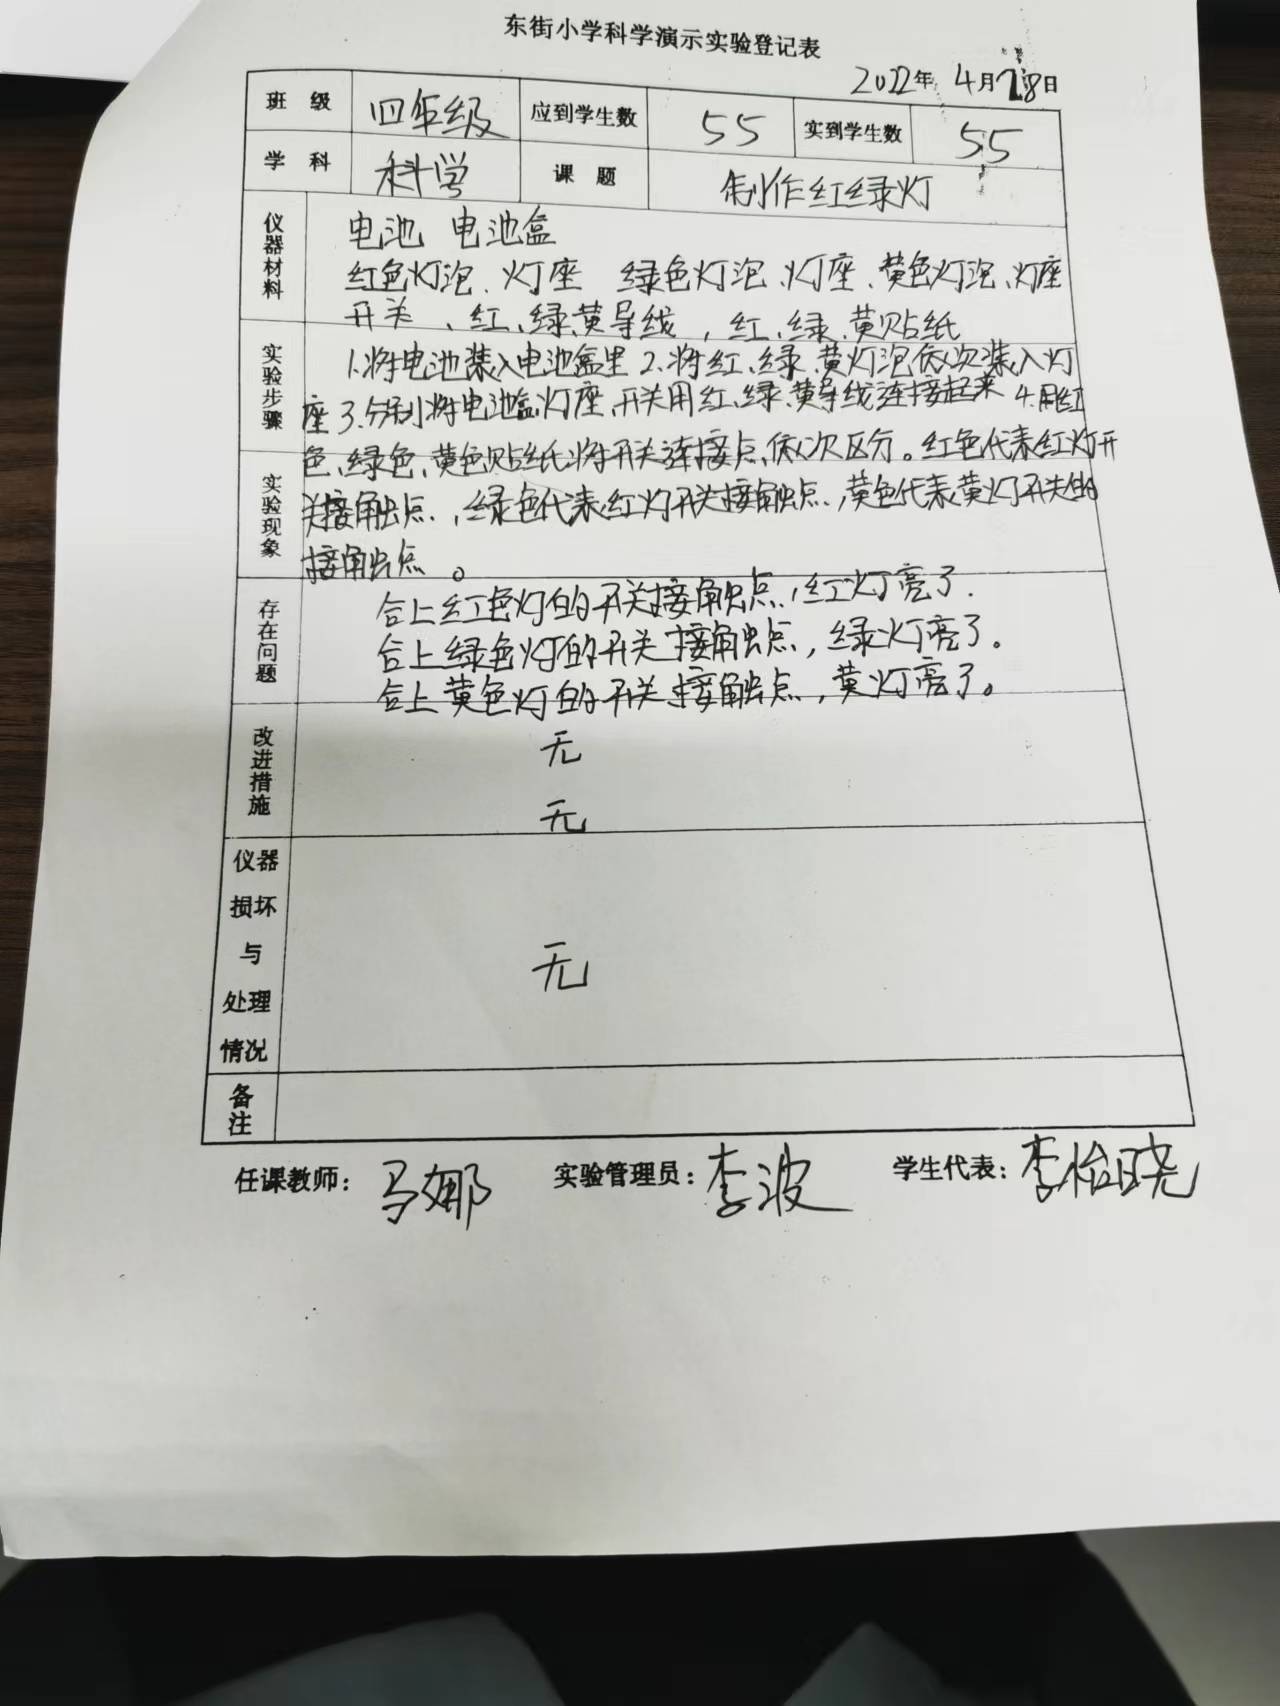 东街小学科学演示实验登记表
2022年 4月28日
班 级 四年级 应到学生数 55 实到学生数 55
学 科 科学 课 题 制作红绿灯
仪器材料 电池 电池盒
红色灯泡、灯座 绿色灯泡、灯座、黄色灯泡、灯座
开关、红、绿、黄导线，红、绿、黄贴纸
实验步骤 1.将电池装入电池盒里 2.将红、绿、黄灯泡依次装入灯
座 3.分别将电池盒、灯座、开关用红、绿、黄导线连接起来 4.用红
色、绿色、黄色贴纸将开关连接点依次区分。红色代表红灯开
实验现象 关接触点，绿色代表红灯开关接触点，黄色代表黄灯开关的
接触点。
存在问题 合上红色灯的开关接触点，红灯亮了．
合上绿色灯的开关接触点，绿灯亮了。
合上黄色灯的开关接触点，黄灯亮了。
改进措施 无
无
仪器损坏与处理情况 无
备注
任课教师：马娜 实验管理员：李波 学生代表：李怡晓